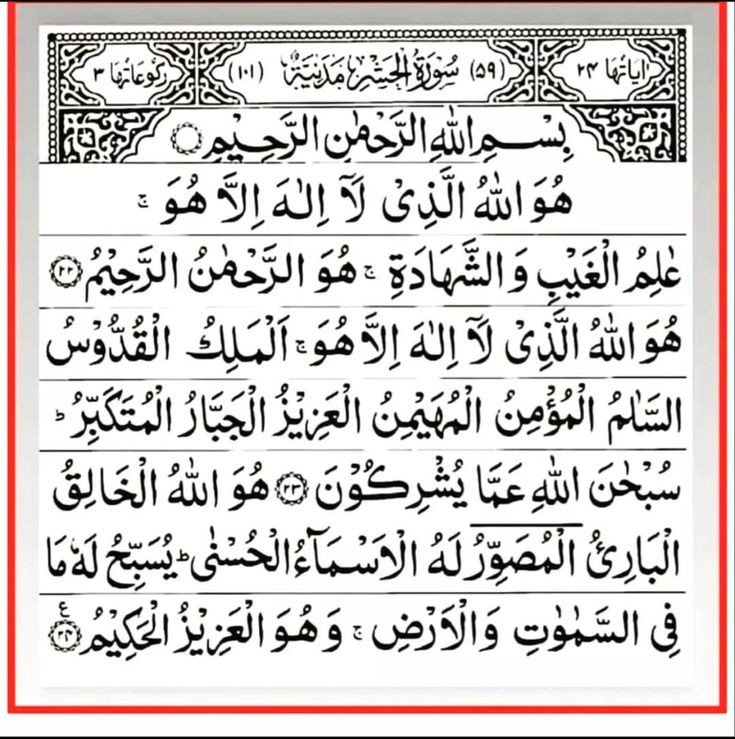 اٰیاتها ٢٤ (٥٩) سُوْرَةُ الْحَشْرِ مَدَنِيَّةٌ (١٠١) رکوعاتها ٣
بِسْمِ اللهِ الرَّحْمٰنِ الرَّحِيْمِ
هُوَ اللهُ الَّذِیْ لَآ اِلٰهَ اِلَّا هُوَ ۚ
عٰلِمُ الْغَيْبِ وَالشَّهَادَةِ ۚ هُوَ الرَّحْمٰنُ الرَّحِيْمُ ﴿٢٢﴾
هُوَ اللهُ الَّذِیْ لَآ اِلٰهَ اِلَّا هُوَ ۚ اَلْمَلِكُ الْقُدُّوْسُ
السَّلٰمُ الْمُؤْمِنُ الْمُهَيْمِنُ الْعَزِيْزُ الْجَبَّارُ الْمُتَكَبِّرُ ؕ
سُبْحٰنَ اللهِ عَمَّا يُشْرِكُوْنَ ﴿٢٣﴾ هُوَ اللهُ الْخَالِقُ
الْبَارِئُ الْمُصَوِّرُ لَهُ الْاَسْمَآءُ الْحُسْنٰى ؕ يُسَبِّحُ لَهٗ مَا
فِی السَّمٰوٰتِ وَالْاَرْضِ ۚ وَهُوَ الْعَزِيْزُ الْحَكِيْمُ ﴿٢٤﴾ ع